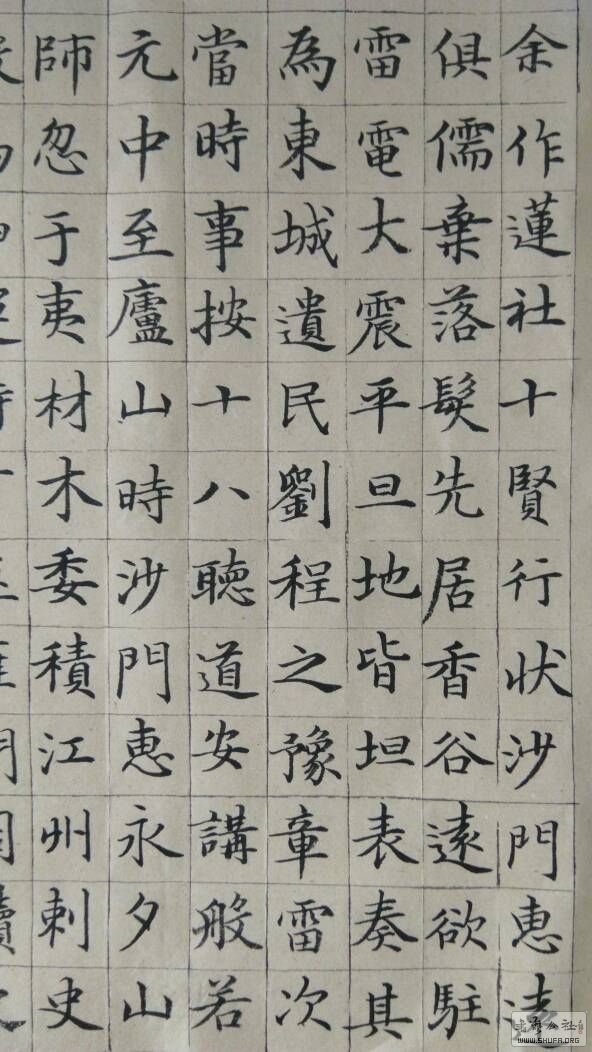 余作蓮社十賢行状沙門惠遠
俱儒棄落髮先居香谷遠欲駐
雷電大震平旦地皆坦表奏其
為東城遺民劉程之豫章雷次
當時事按十八聴道安講般若
元中至廬山時沙門惠永夕山
師忽于夷材木委積江州刺史
WWW.SHUFA.ORG